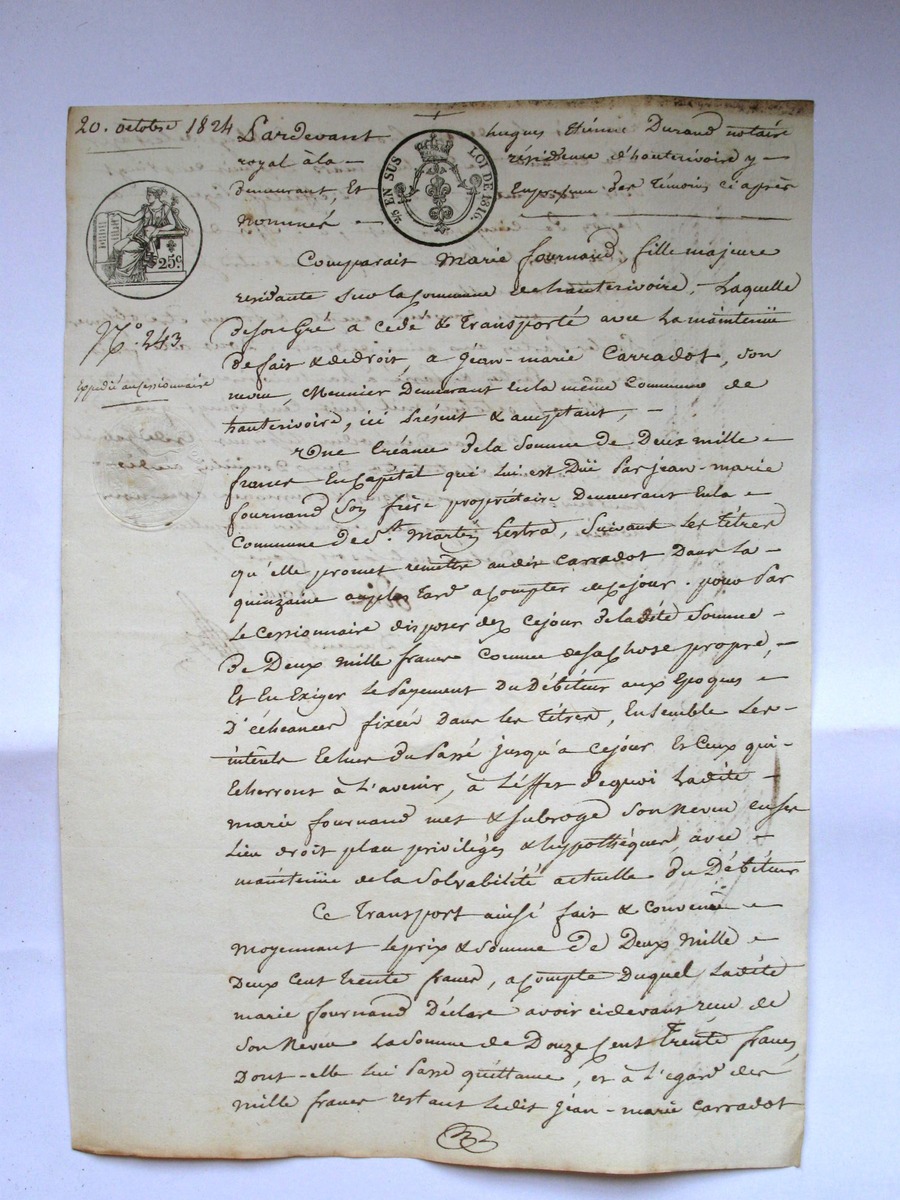 20. octobre 1824
Pardevant hugues Etienne Durand notaire
royal à la - résidence d'hauterivoire y -
demeurant, Et En presence des Témoins ci après
nommés -
25 EN SUS LOI DE 1816.
25c.
Comparait Marie fournand, fille majeure
residante sur la Commune de hauterivoire, - Laquelle
de son Gré a Cedé & Transporté avec la maintenüe
N.o 243
De fait & de droit, a jean-marie Carradot, son
Expedié au Cessionnaire
neveu, Meunier Demeurant En la même Commune de
hauterivoire, ici Présent & acceptant, -
Une Créance de la Somme de Deux mille -
francs En Capital qui lui est Düe Par jean-marie
fournand Son frère propriétaire Demeurant En la -
Commune de St. Martin Lestra, Suivant les Titres
qu'elle promet remettre au dit Carradot Dans la -
quinzaine au plus Tard a Compter de ce jour. pour Par
Le Cessionnaire disposer dez Ce jour de la dite Somme -
De Deux mille francs Comme de sa Chose propre, -
Et En Exiger Le Payement Du Débiteur aux Epoques -
D'échéances fixées dans les Titres, Ensemble Les -
intérêts Echus du Passé jusqu'a Ce jour Et Ceux qui -
Echerront à L'avenir, à L'éffet de quoi Ladite -
marie fournand met & subroge Son Neveu en ses
Lieu droit place priviléges & hypothèques, avec -
maintenüe de la Solvabilité actuelle du Débiteur
Ce Transport ainsi fait & Convenu -
Moyennant Le prix & Somme de Deux Mille -
Deux Cent Trente francs, a Compte Duquel Ladite
marie fournand Déclare avoir ci devant reçu de
Son Neveu La Somme de Douze Cent Trente francs,
Dont-elle Lui Passe quittance, et à L'égard des
mille francs restant Ledit jean-marie Carradot